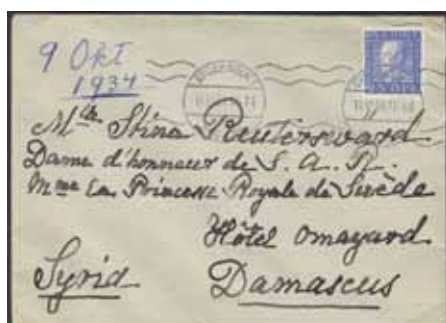 9 Okt
1934
Mlle Stina Reuterswärd
Dame d'honneur de S. A. R.
Mme La Princesse Royale de Suède
Hôtel Omayard
Syria
Damascus